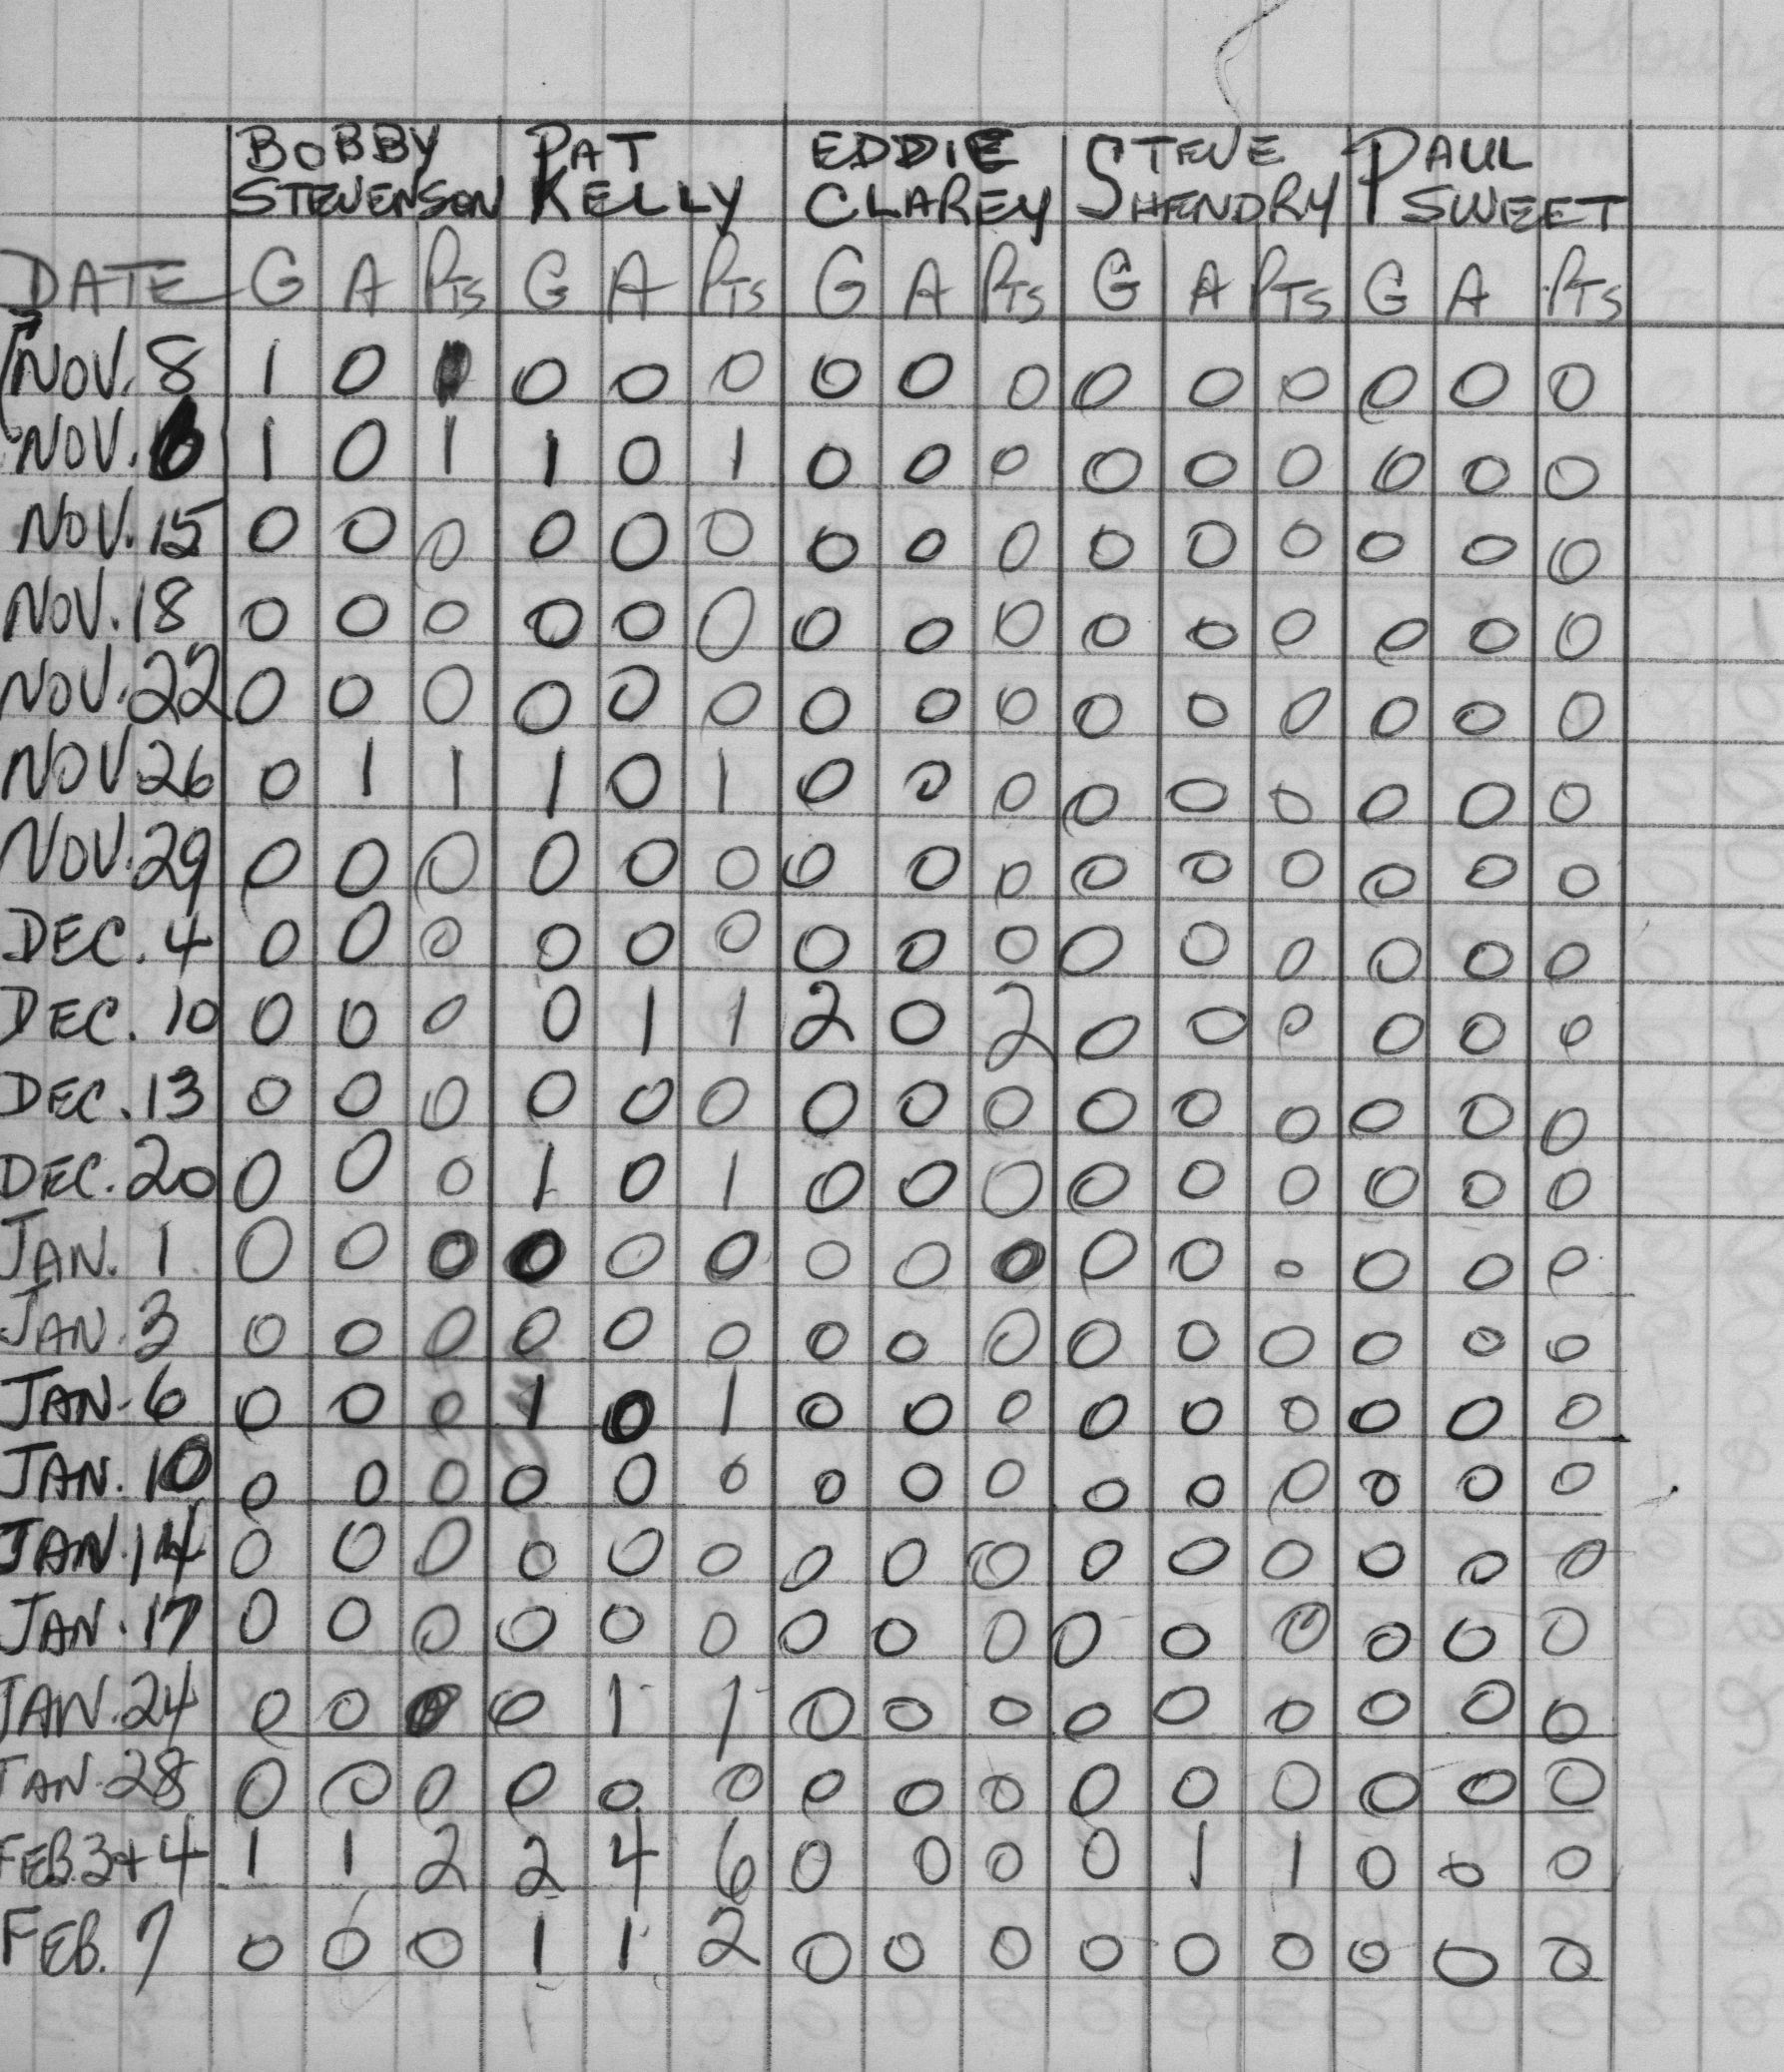 BOBBY PAT EDDIE STEVE PAUL
STEVENSON KELLY CLAREY SHENDRY SWEET
DATE G A PTS G A PTS G A PTS G A PTS G A PTS
NOV. 8 1 0 1 0 0 0 0 0 0 0 0 0 0 0 0
NOV. 6 1 0 1 1 0 1 0 0 0 0 0 0 0 0 0
NOV. 15 0 0 0 0 0 0 0 0 0 0 0 0 0 0 0
NOV. 18 0 0 0 0 0 0 0 0 0 0 0 0 0 0 0
NOV. 22 0 0 0 0 0 0 0 0 0 0 0 0 0 0 0
NOV 26 0 1 1 1 0 1 0 0 0 0 0 0 0 0 0
NOV. 29 0 0 0 0 0 0 0 0 0 0 0 0 0 0 0
DEC. 4 0 0 0 0 0 0 0 0 0 0 0 0 0 0 0
DEC. 10 0 0 0 0 1 1 2 0 2 0 0 0 0 0 0
DEC. 13 0 0 0 0 0 0 0 0 0 0 0 0 0 0 0
DEC. 20 0 0 0 1 0 1 0 0 0 0 0 0 0 0 0
JAN. 1 0 0 0 0 0 0 0 0 0 0 0 0 0 0 0
JAN. 3 0 0 0 0 0 0 0 0 0 0 0 0 0 0 0
JAN. 6 0 0 0 1 0 1 0 0 0 0 0 0 0 0 0
JAN. 10 0 0 0 0 0 0 0 0 0 0 0 0 0 0 0
JAN. 14 0 0 0 0 0 0 0 0 0 0 0 0 0 0 0
JAN. 17 0 0 0 0 0 0 0 0 0 0 0 0 0 0 0
JAN. 24 0 0 0 0 1 1 0 0 0 0 0 0 0 0 0
JAN. 28 0 0 0 0 0 0 0 0 0 0 0 0 0 0 0
FEB. 3+4 1 1 2 2 4 6 0 0 0 0 1 1 0 0 0
FEB. 7 0 0 0 1 1 2 0 0 0 0 0 0 0 0 0